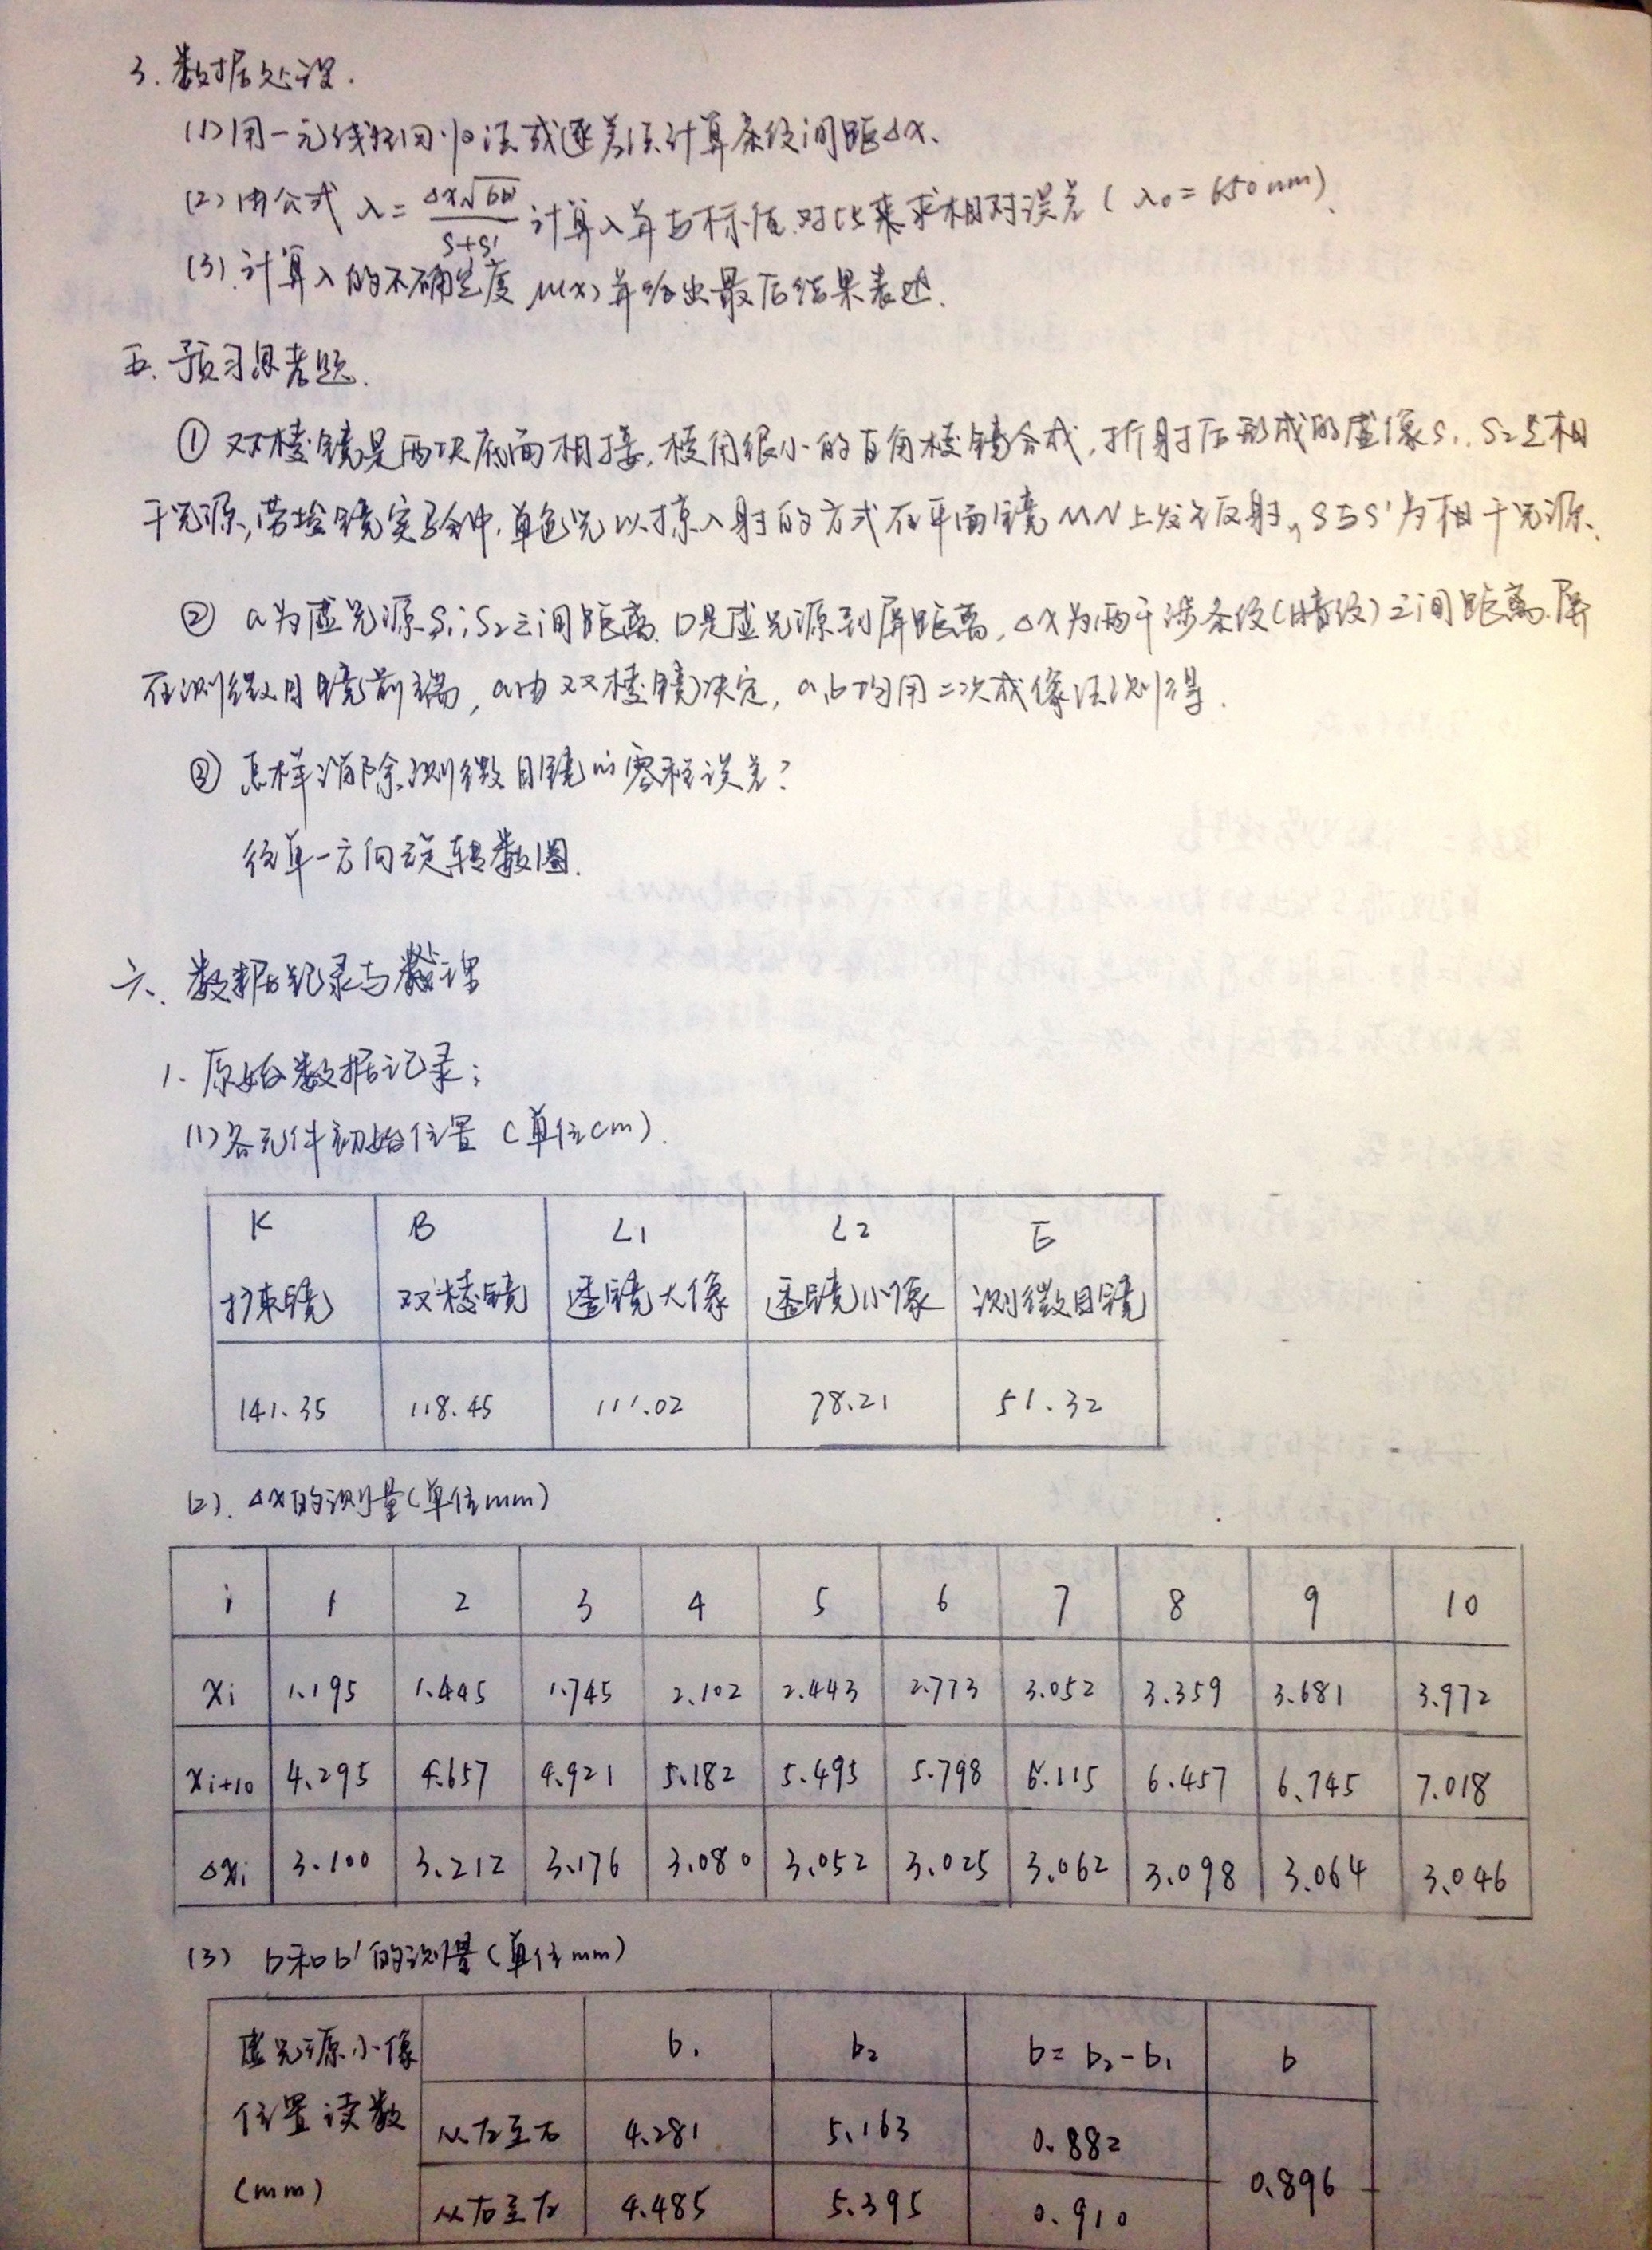 3. 数据处理.
(1) 用一元线性回归法或逐差法计算条纹间距Δx.
(2) 由公式 λ = Δx√bb' / (S+S') 计算λ并与标准值对比来求相对误差 ( λ₀ = 650nm ).
(3). 计算λ的不确定度 μ(λ) 并给出最后结果表达.
五. 预习思考题.
① 双棱镜是两块底面相接, 棱角很小的直角棱镜合成, 折射后形成的虚像S₁、S₂是相
干光源, 劳埃镜实验中, 单色光以掠入射的方式在平面镜MN上发生反射, S与S'为相干光源.
② a为虚光源S₁, S₂之间距离. D是虚光源到屏距离, Δx为两干涉条纹(暗纹)之间距离. 屏
在测微目镜前端, a由双棱镜决定, a, b均用二次成像法测得.
③ 怎样消除测微目镜的空程误差?
往单一方向旋转数圈.
六. 数据记录与处理
1. 原始数据记录:
(1) 各元件初始位置 (单位cm).
K B L1 L2 E
扩束镜 双棱镜 透镜大像 透镜小像 测微目镜
141.35 118.45 111.02 78.21 51.32
(2). Δx的测量 (单位mm)
i 1 2 3 4 5 6 7 8 9 10
xi 1.195 1.445 1.745 2.102 2.443 2.773 3.052 3.359 3.681 3.972
xi+10 4.295 4.657 4.921 5.182 5.495 5.798 6.115 6.457 6.745 7.018
Δxi 3.100 3.212 3.176 3.080 3.052 3.025 3.062 3.098 3.064 3.046
(3) b和b'的测量 (单位mm)
虚光源小像 b₁ b₂ b= b₂-b₁ b
位置读数 从左至右 4.281 5.163 0.882
(mm) 从右至左 4.485 5.395 0.910 0.896